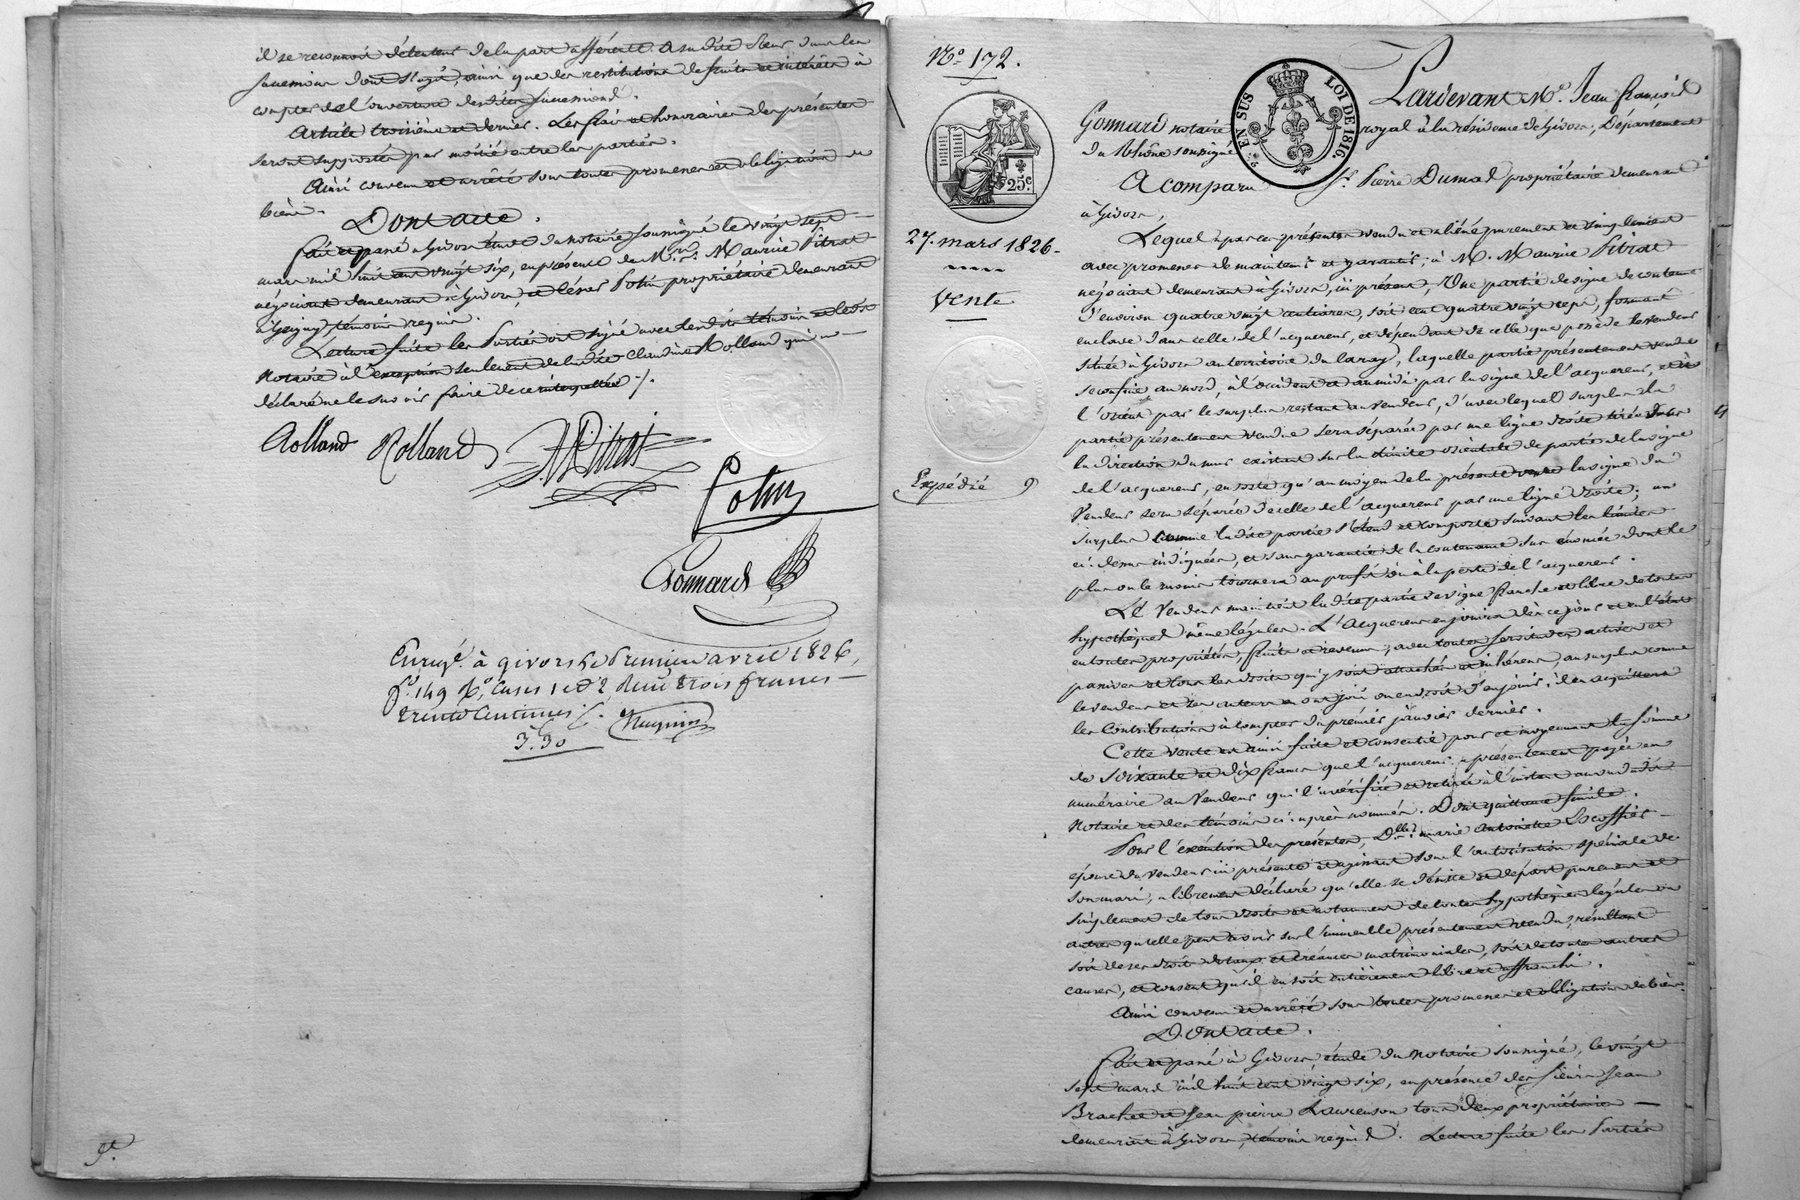 il se reconnoit détenteur de la part afférente à sa dite sœur dans les
successions dont s'agit, ainsi que des restitutions de fruits et intérêts à
compter de l'ouverture desdites successions.
Article troisième et dernier. Les frais et honoraires des présentes
seront supportés par moitié entre les parties.
Ainsi convenu et arrêté sous toutes promesses et obligations de
biens.
Dont acte.
fait et passé à Givors étude du notaire soussigné le vingt sept
mars mil huit cent vingt six, en présence de Mrs. Maurice Pitrat
négociant demeurant à Givors et César Potin propriétaire demeurant
à Grigny témoins requis.
Lecture faite les Parties ont signé avec lesdits témoins et ledit
Notaire à l'exception seulement de ladite Claudine Rolland qui a
déclaré ne le savoir faire de ce interpellée ./.
Rolland Rolland M. Pitrat
Potin
Gonnard
Enregé. à givors le Premier avril 1826,
fo. 149 Vo. Cases 1 et 2 Reçu trois francs
trente Centimes.
3.30
No. 172.
25c
EN SUS
LOI DE 1816.
27. mars 1826.
Vente
Expédié
Pardevant Me. Jean françois
Gonnard notaire royal à la résidence de Givors, Département
du Rhône soussigné
A comparu Sr. Pierre Dumas propriétaire demeurant
à Givors,
Lequel a par ces présentes vendu et aliéné purement et simplement
avec promesse de maintenir et garantir, à M. Maurice Pitrat
négociant demeurant à Givors, ici présent, Une partie de vigne de contenue
d'environ quatre vingt centiares, soit en quatre vingt ceps, formant
enclave dans celle de l'acquereur, et dépendant de celle que possède le vendeur
située à Givors au territoire du laray, laquelle partie présentement vendue
se confine au nord, à l'occident et au midi par la vigne de l'acquereur, et à
l'orient par le surplus restant au vendeur, d'avec lequel surplus la
partie présentement vendue sera séparée par une ligne droite tirée dans
la direction du mur existant sur la limite orientale de partie de la vigne
de l'acquereur, en sorte qu'au moyen de la présente vente la vigne du
Vendeur sera séparée d'celle de l'acquereur par une ligne droite; au
surplus comme ladite partie s'étend et comporte suivant les limites
ci-dessus indiquées, et sans garantie de la contenance sus énoncée dont le
plus ou le moins tournera au profit ou à la perte de l'acquereur.
Le Vendeur maintient ladite partie de vigne franche et libre de toutes
hypothèques même légales. L'Acquereur en jouira dès ce jour et en l'état
en toute propriété, fruits et revenus, avec toutes servitudes actives et
passives et tous les droits qui y sont attachés et inhérens, au surplus comme
le vendeur et ses auteurs en ont joui ou en droit d'en jouir; il en acquittera
les Contributions à compter du premier janvier dernier.
Cette vente est ainsi faite et consentie pour et moyennant la somme
de soixante et dix francs que l'acquereur a présentement payée en
numéraire au Vendeur qui l'a vérifiée et retirée à l'instant au vu dudit
Notaire et des témoins ci-après nommés. Dont quittance finale.
Pour l'exécution des présentes, Dlle. marie Antoinette Escoffier
épouse du vendeur ici présente et agissant sous l'autorisation spéciale de
son mari, a librement déclaré qu'elle se désiste et départ purement et
simplement de tous droits et notamment de toutes hypothèques légales ou
autres qu'elle peut avoir sur l'immeuble présentement vendu, résultant
soit de ses droits dotaux et créances matrimoniales, soit de toutes autres
causes, et consent qu'il en soit entièrement libre et affranchi.
Ainsi convenu et arrêté sous toutes promesses et obligations de biens.
Dont acte.
fait et passé à Givors étude du Notaire soussigné, le vingt
sept mars mil huit cent vingt six, en présence des sieurs Jean
Brachet et Jean pierre Laurenson tous deux propriétaires
demeurant à Givors, témoins requis. Lecture faite les Parties